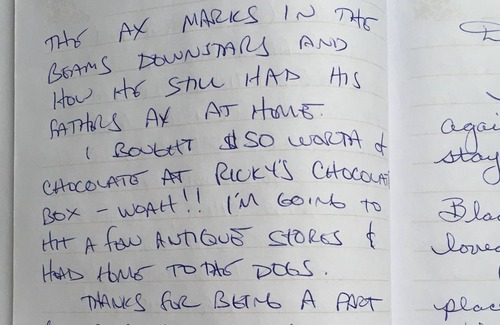 THE AX MARKS IN THE
BEAMS DOWNSTARS AND
HOW HE STILL HAD HIS
FATHERS AX AT HOME.
I BOUGHT $50 WORTH of
CHOCOLATE AT RICKY'S CHOCOLATE
BOX - WOAH!! I'M GOING TO
HIT A FEW ANTIQUE STORES &
HEAD HOME TO THE DOGS.
THANKS FOR BEING A PART
agai
stay
Bla
loved
place